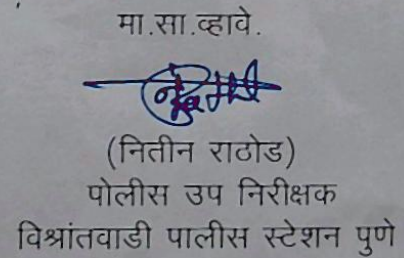 मा.सा.व्हावे.
(नितीन राठोड)
पोलीस उप निरीक्षक
विश्रांतवाडी पालीस स्टेशन पुणे